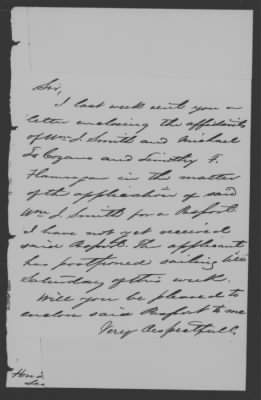 Sir,
I last week sent you a
letter enclosing the affidavits
of Wm J. Smith and Michael
and Timothy F.
Flannagan in the matter
of the application of said
Wm J. Smith for a Passport.
I have not yet received
said Passport. The applicant
has postponed sailing till
Saturday of this week.
Will you be pleased to
enclose said Passport to me
Very Respectfully